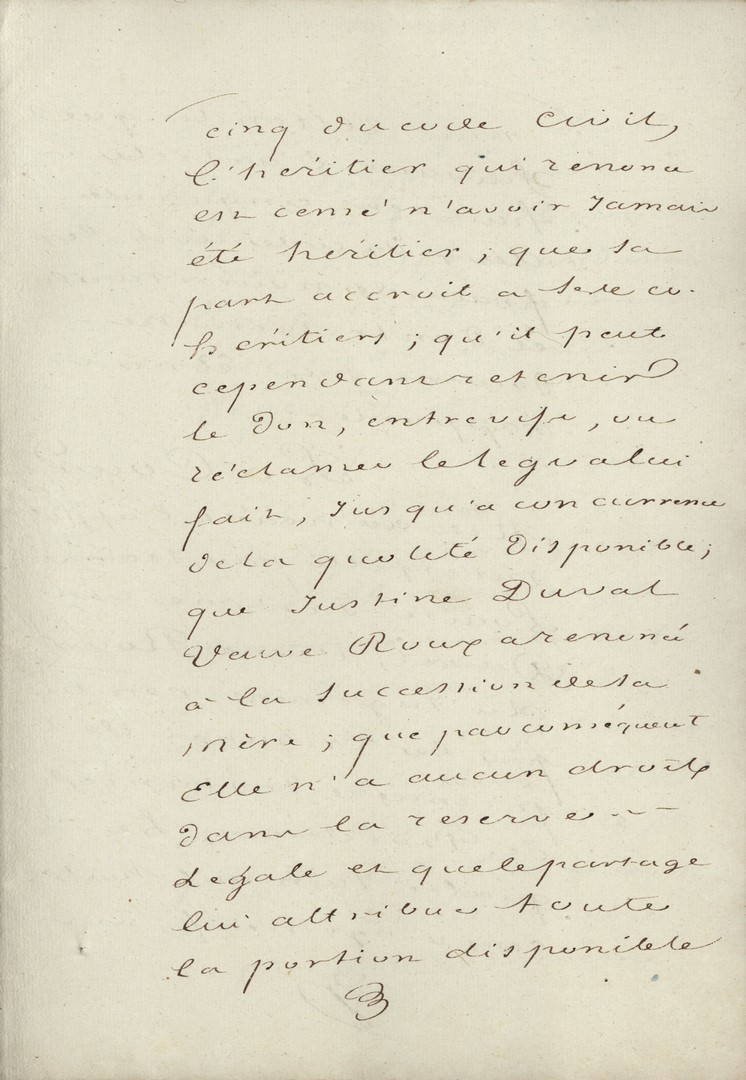 cinq du code Civil,
l'héritier qui renonce
est censé n'avoir Jamais
été héritier ; que sa
part accroit a Ses co-
héritiers ; qu'il peut
cependant retenir
le Don, entre vifs, ou
réclamer le legs a lui
fait, Jusqu'a concurrence
de la quotité Disponible ;
que Justine Duval
Veuve Roux a renoncé
à la Succession de sa
mère ; que par conséquent
Elle n'a aucun droit
Dans la reserve
Légale et que le partage
lui attribue toute
la portion disponible